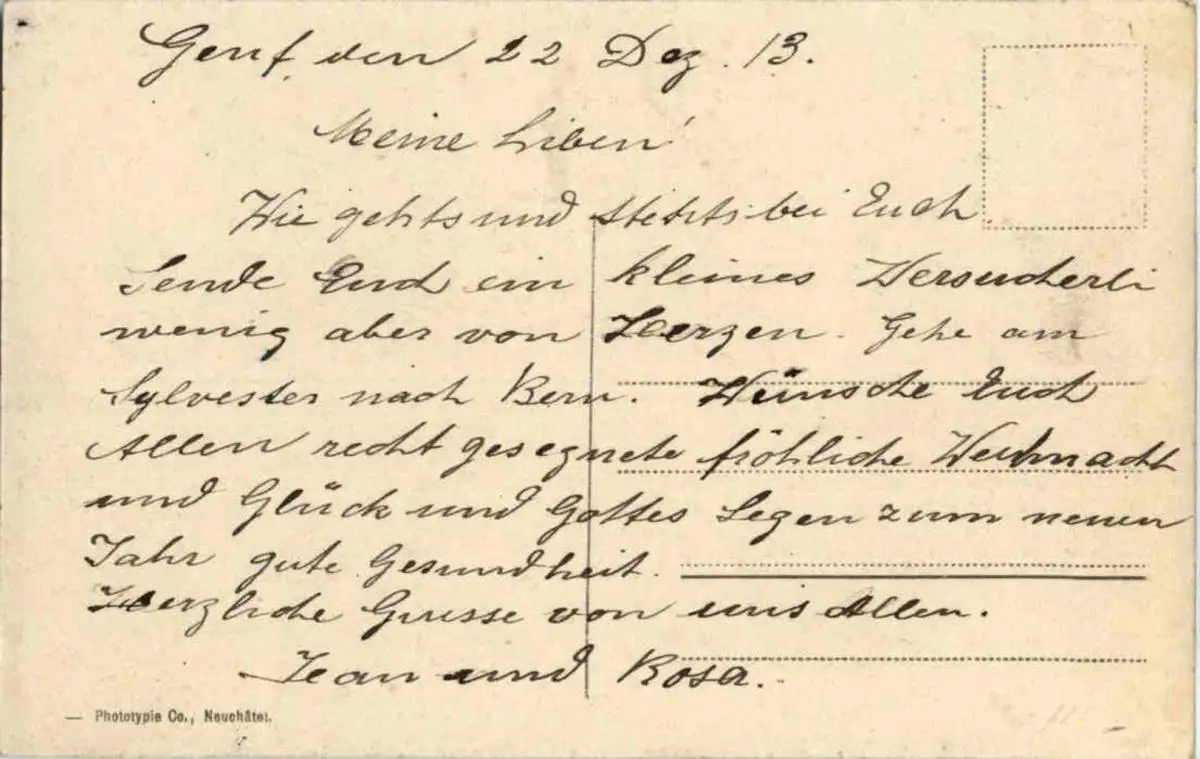 Genf den 22 Dez. 13.
Meine Liben!
Wie gehts und stehts bei Euch
Sende Euch ein kleines Versucherli
wenig aber von Herzen. Gehe am
Sylvester nach Bern. Wünsche Euch
Allen recht gesegnete fröhliche Weihnacht
und Glück und Gottes Segen zum neuen
Jahr gute Gesundheit.
Herzliche Grüsse von uns Allen.
Jean und Rosa.
— Phototypie Co., Neuchâtel.